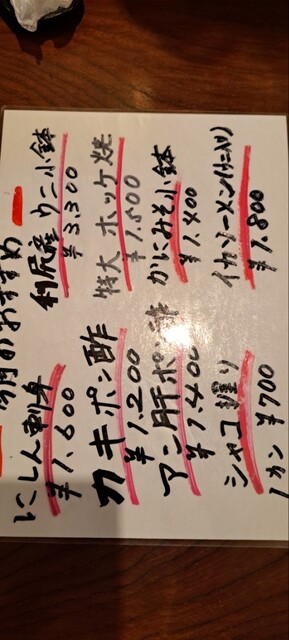 のおすすめ
にしん刺身
¥1,600
利尻産 ウニ小鉢
¥3,300
カキポン酢
¥1,200
特大 ホッケ焼
¥1,500
アン肝ポン酢
¥1,400
かにみそ小鉢
¥1,400
シャコ握り
1カン ¥700
イカソーメン(ウニ入り)
¥1,800